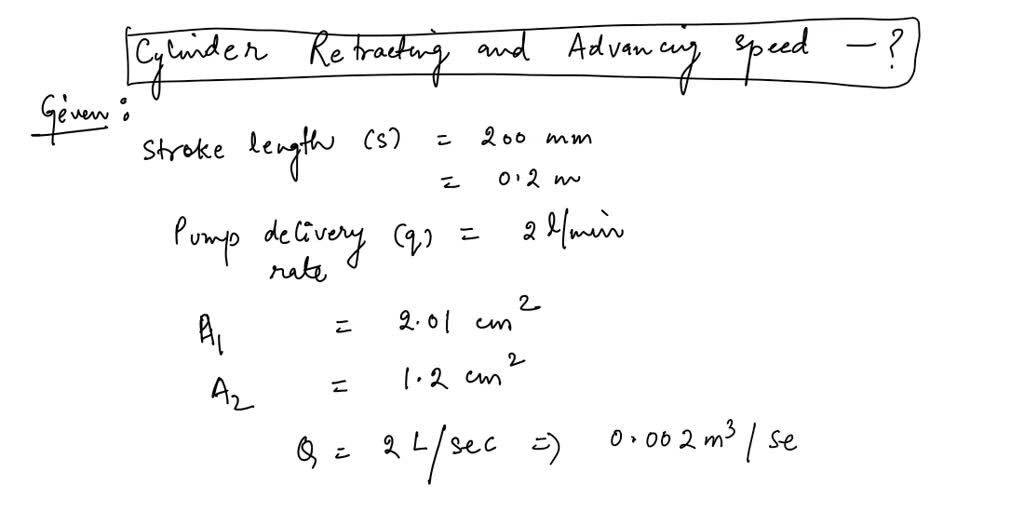 Cylinder Retracting and Advancing speed - ?
Given:
Stroke length (s) = 200 mm
= 0.2 m
Pump delivery (q) = 2 l/min
rate
A1 = 2.01 cm²
A2 = 1.2 cm²
Q = 2 L/sec => 0.002 m³/se